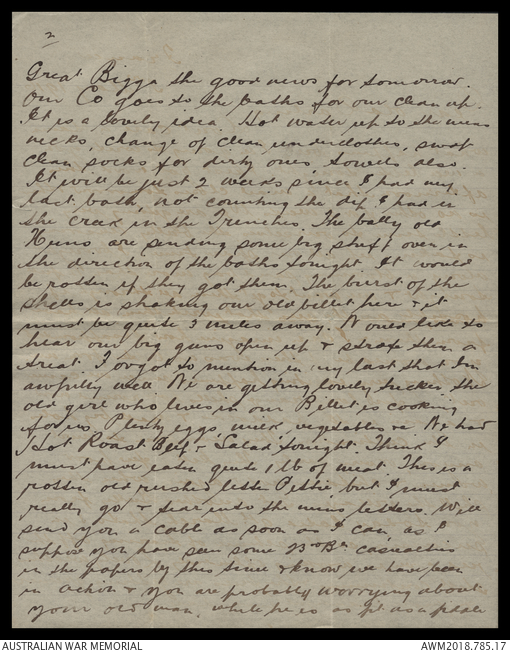 2
Great Bigga the good news for tomorrow.
Our Co goes to the baths for our clean up.
It is a lovely idea. Hot water up to the mens
necks, change of clean underclothes, swap
clean socks for dirty ones towels also.
It will be just 2 weeks since I had my
last bath, not counting the dip I had in
the creek in the Trenches. The bally old
Huns are sending some big stuff over in
the direction of the baths tonight. It would
be rotten if they got them. The burst of the
shells is shaking our old billet here & it
must be quite 3 miles away. Would like to
hear our big guns open up & strafe them a
treat. Forgot to mention in my last that Im
awfully well. We are getting lovely tucker the
old girl who lives in our Billet is cooking
for us. Plenty eggs, milk, vegetables &c We had
Hot Roast Beef & Salad tonight. Think I
must have eaten quite 1 lb of meat. This is a
rotten old rushed letter Pettie but I must
really go & tear into the mens letters. Will
send you a cable as soon as I can, as I
suppose you have seen some 23rd Bn casualties
in the papers by this time & know we have been
in action & you are probably worrying about
your old man, while he is as fit as a
AUSTRALIAN WAR MEMORIAL
AWM2018.785.17